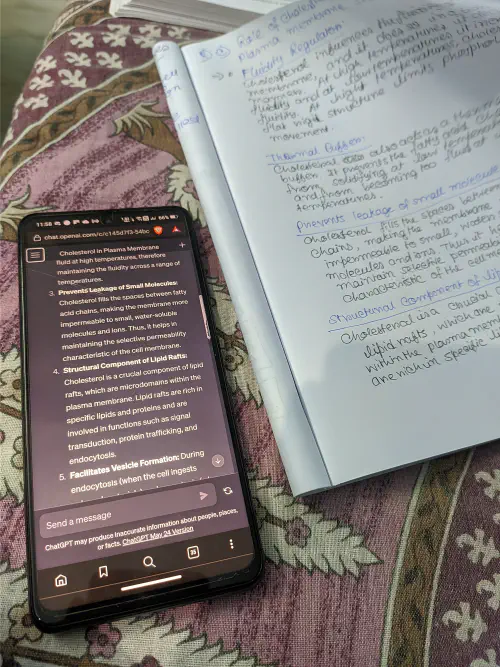 11:58
66%
chat.openai.com/c/c145d7f3-54bc
Cholesterol in Plasma Membrane
fluid at high temperatures, therefore
maintaining the fluidity across a range of
temperatures.
3. Prevents Leakage of Small Molecules:
Cholesterol fills the spaces between fatty
acid chains, making the membrane more
impermeable to small, water-soluble
molecules and ions. Thus, it helps in
maintaining the selective permeability
characteristic of the cell membrane.
4. Structural Component of Lipid Rafts:
Cholesterol is a crucial component of lipid
rafts, which are microdomains within the
plasma membrane. Lipid rafts are rich in
specific lipids and proteins and are
involved in functions such as signal
transduction, protein trafficking, and
endocytosis.
5. Facilitates Vesicle Formation: During
endocytosis (when the cell ingests
Send a message
ChatGPT may produce inaccurate information about people, places,
or facts. ChatGPT May 24 Version
35
Role of Cholest
Plasma membrane
Fluidity Regulation
Cholesterol influences the
membrane, and it does so in
At high temperatures, it
fluidity and at low temperatures, it
fluidity. At
flat rigid structure limits phosph
movement.
Thermal Buffer:
Cholesterol also acts as a therm
buffer. It prevents the fatty acid
from solidifying at low temper
and from becoming too fluid at
temperatures.
Prevents leakage of small molecule
Cholesterol fills the spaces between
chains, making the membrane
impermeable to small, water
molecules and ions. Thus it
maintain selective permeab
characteristic of the cell me
Structural Component of
Cholesterol is a crucial
lipid rafts, which are
within the plasma me
are rich in specific